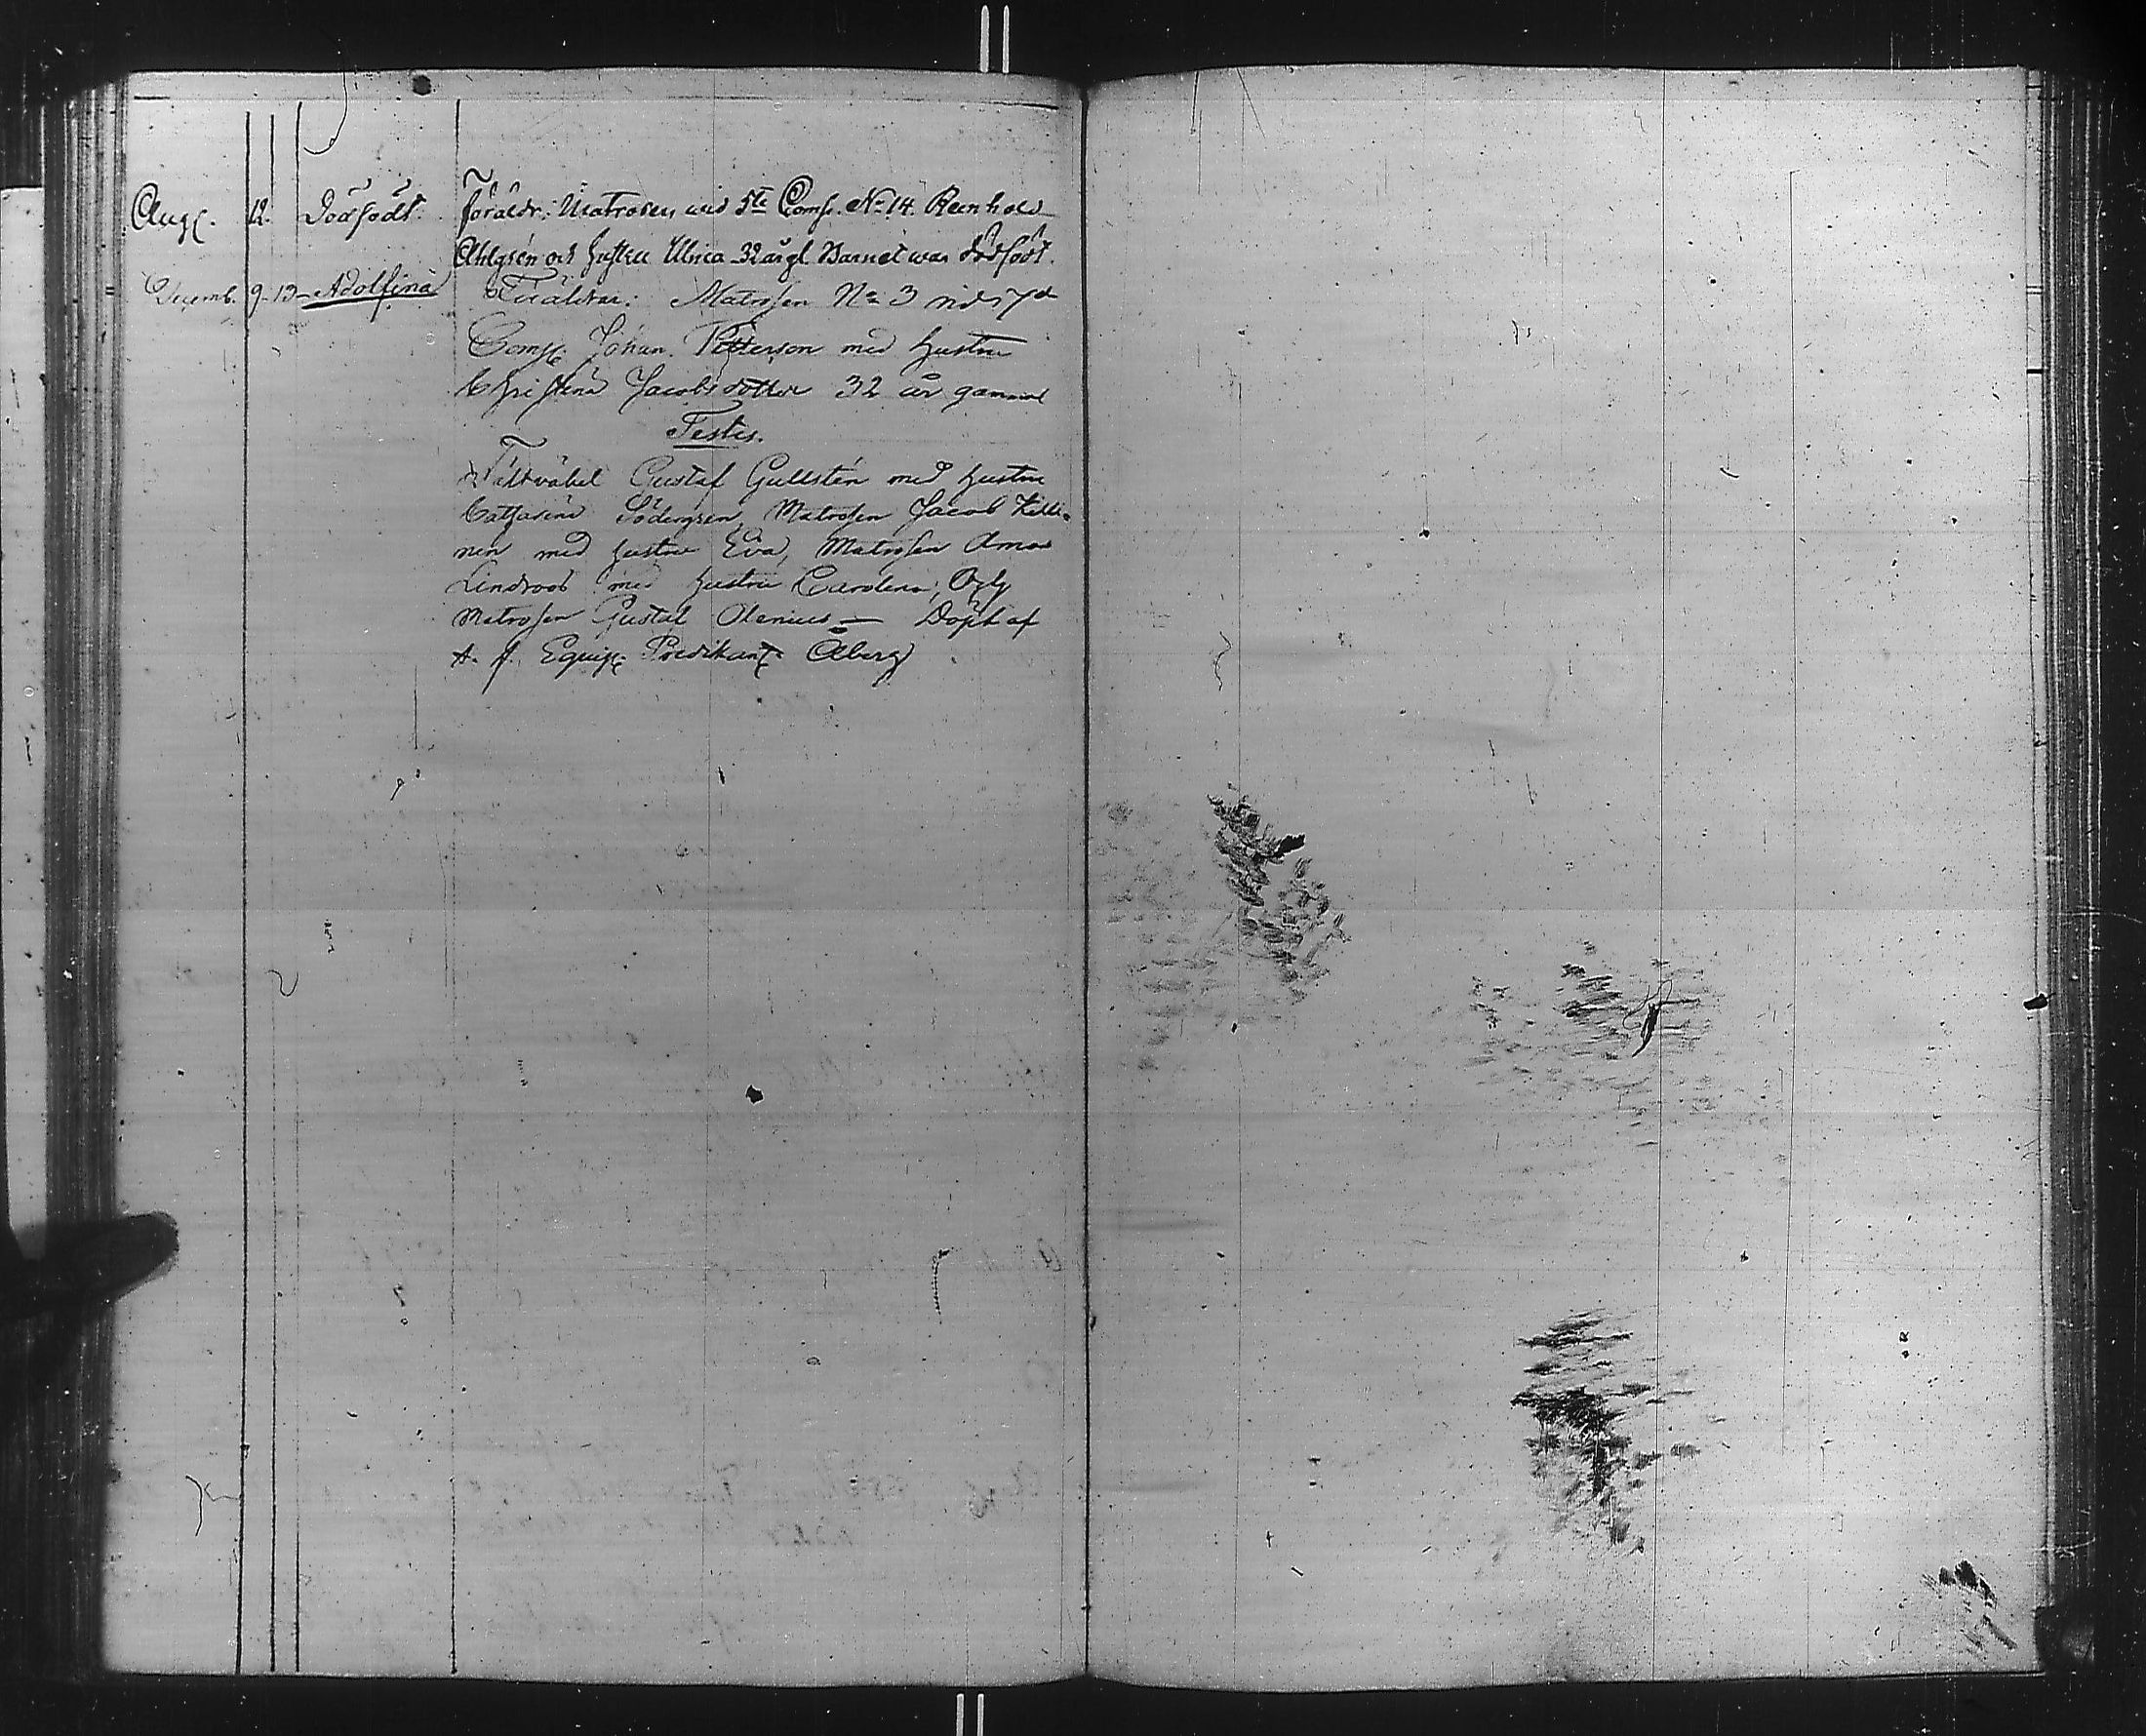 Aug. 12. Dödfödt. Föräldr: Matrosen vid 5te Comp. No 14. Reinhold
Ahlgrén och hustru Ulrica 32 år gl. Barnet war dödfödt.
Decemb. 9 - 13 - Adolfina Föräldrar: Matrosen No 3 vid 7de
Comp: Johan Petterson med hustru
Christina Jacobsdotter 32 år gammal
Testes.
Fältväbel Gustaf Gullstén med hustru
Catharina Södergren, Matrosen Jacob
nen med hustru Eva, Matrosen
Lindroos med hustru Carolina, Och
Matrosen Gustaf Olenius — Döpt af
t. f. Equip: Predikant: Åberg